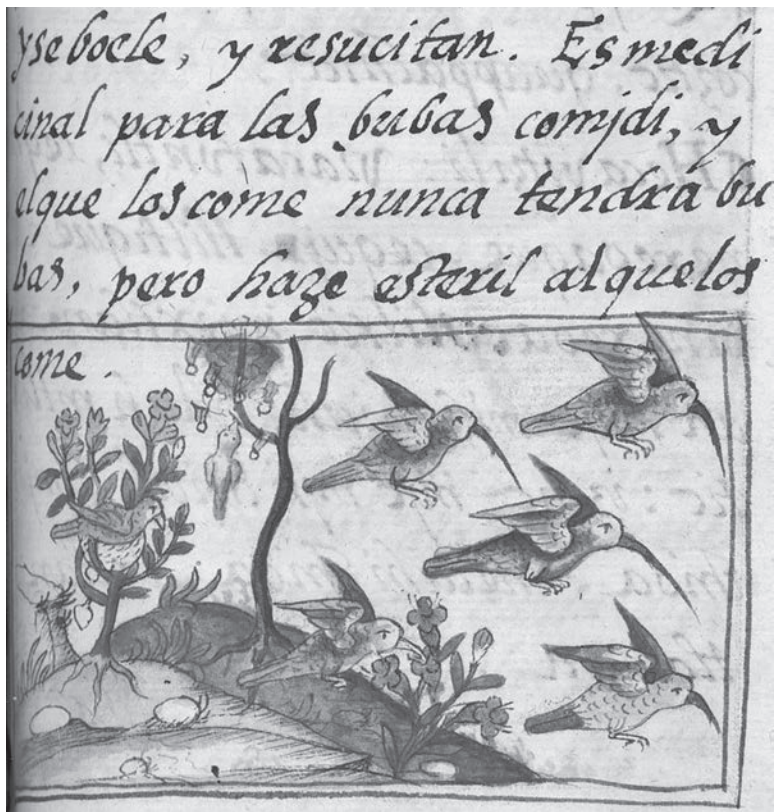 y se boele, y resucitan. Es medi
cinal para las bubas comjdi, y
el que los come nunca tendra bu
bas, pero haze esteril al que los
come.